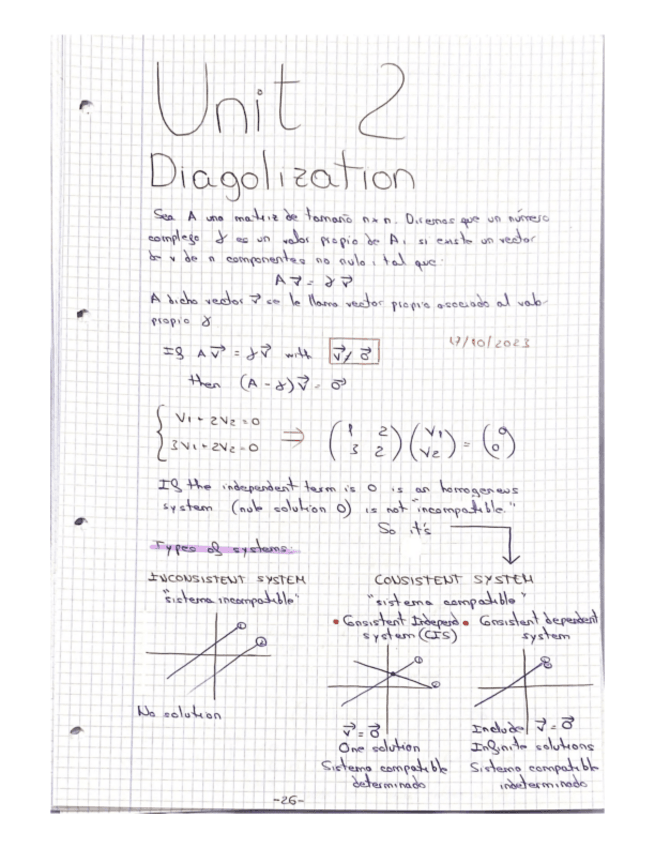 Unit 2
Diagolization
Sea A una matriz de tamaño n×n. Diremos que un número
complejo γ es un valor propio de A, si existe un vector
v de n componentes no nulo, tal que:
A v⃗ = γ v⃗
A dicho vector v⃗ se le llama vector propio asociado al valor
propio γ
If A v⃗ = γ v⃗ with v⃗ ≠ 0⃗
17/10/2023
then (A - γ) v⃗ = 0⃗
{ V1 + 2V2 = 0
3V1 + 2V2 = 0 ⇒ (1 2 3 2) (V1 V2) = (0 0)
If the independent term is 0 is an homogeneus
system (nule solution 0) is not "incompatible."
So it's
Types of systems:
INCONSISTENT SYSTEM
"sistema incompatible"
1
2
No solution
CONSISTENT SYSTEM
"sistema compatible"
• Consistent Independ
system (CIS)
1
2
v⃗ = 0⃗
One solution
Sistema compatible
determinado
• Consistent dependent
system
Include v⃗ = 0⃗
Infinite solutions
Sistema compatible
indeterminado
-26-